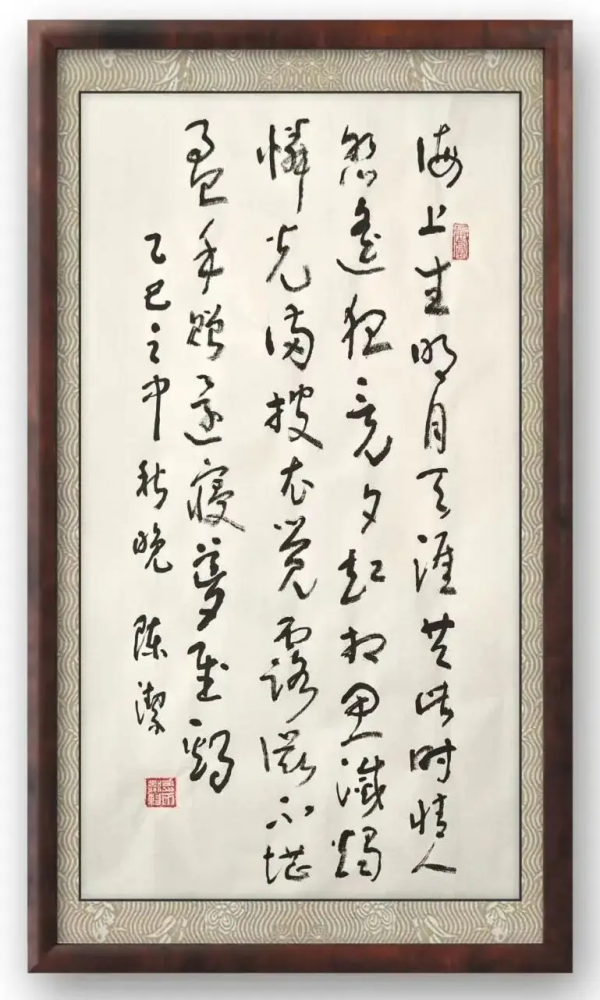 海上生明月天涯共此时情人
怨遥夜竟夕起相思滅燭
憐光满披衣覺露滋不堪
盈手贈還寢夢佳期
乙巳之中秋晚 陈潔